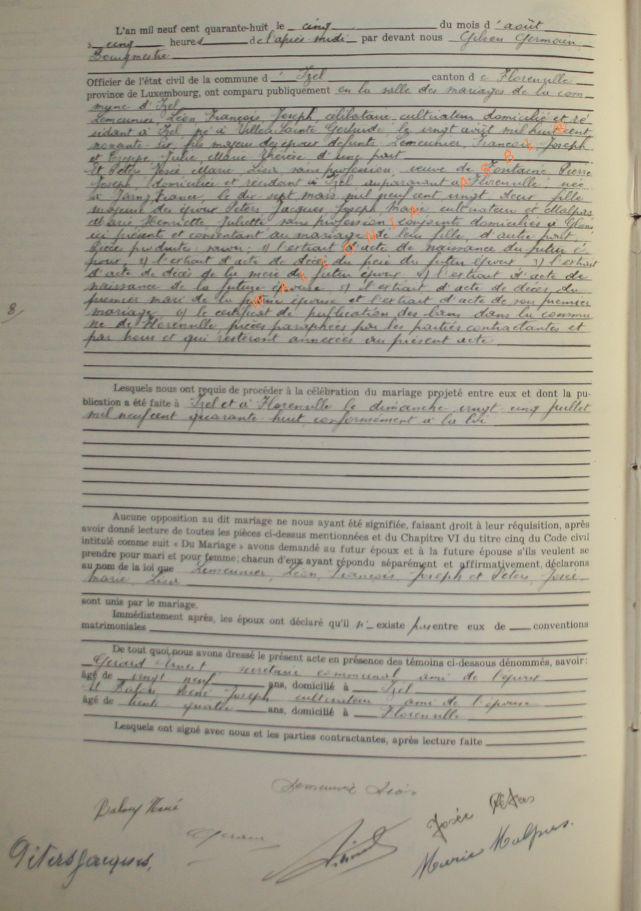 L'an mil neuf cent quarante-huit le cinq du mois d'août
à cinq heures de l'après-midi par devant nous Gilson Germain,
Bourgmestre
Officier de l'état civil de la commune d'Izel canton de Florenville
province de Luxembourg, ont comparu publiquement en la salle des mariages de la com-
mune d'Izel
Lemeunier, Léon, François, Joseph, célibataire, cultivateur domicilié et ré-
sidant à Izel, né à Villers Sainte Gertrude le vingt août mil huit cent
nonante-six, fils majeur des époux défunts Lemeunier, François, Joseph
et Julie, Marie Thérèse d'une part
Et Peters Josée Marie Lisa sans profession, veuve de Fontaine, Pierre
Joseph, domiciliée et résidant à Izel auparavant à Florenville, née
à France, le dix sept mars mil neuf cent vingt deux, fille
majeure des époux Peters Jacques Joseph Marie cultivateur et Malpas
Marie Henriette Juliette sans profession, conjoints domiciliés à
ici présents et consentant au mariage de leur fille, d'autre part.
Pièces produites: savoir: 1) l'extrait d'acte de naissance du futur é-
poux, 2) l'extrait d'acte de décès du père du futur époux 3) l'extrait
d'acte de décès de la mère du futur époux 4) l'extrait d'acte de
naissance de la future épouse 5) l'extrait d'acte de décès du
premier mari de la future épouse et l'extrait d'acte de son premier
mariage 6) le certificat de publication des bans dans la commu-
ne de Florenville pièces paraphées par les parties contractantes et
par nous et qui resteront annexées au présent acte
8/
Lesquels nous ont requis de procéder à la célébration du mariage projeté entre eux et dont la pu-
blication a été faite à Izel et à Florenville le dimanche vingt cinq juillet
mil neuf cent quarante huit conformément à la loi
Aucune opposition au dit mariage ne nous ayant été signifiée, faisant droit à leur réquisition, après
avoir donné lecture de toutes les pièces ci-dessus mentionnées et du Chapitre VI du titre cinq du Code civil
intitulé comme suit « Du Mariage » avons demandé au futur époux et à la future épouse s'ils veulent se
prendre pour mari et pour femme; chacun d'eux ayant répondu séparément et affirmativement, déclarons
au nom de la loi que Lemeunier, Léon, François, Joseph et Peters, Josée
Marie, Lisa
sont unis par le mariage.
Immédiatement après, les époux ont déclaré qu'il n'existe pas entre eux de conventions
matrimoniales
De tout quoi, nous avons dressé le présent acte en présence des témoins ci-dessous dénommés, savoir:
Gérard Ernest secrétaire communal ami de l'époux
âgé de vingt neuf ans, domicilié à Izel
et René Joseph cultivateur ami de l'épouse
âgé de trente quatre ans, domicilié à Florenville
Lesquels ont signé avec nous et les parties contractantes, après lecture faite
Lemeunier Léon
René
Josée Peters
Peters Jacques.
Marie Malpas.